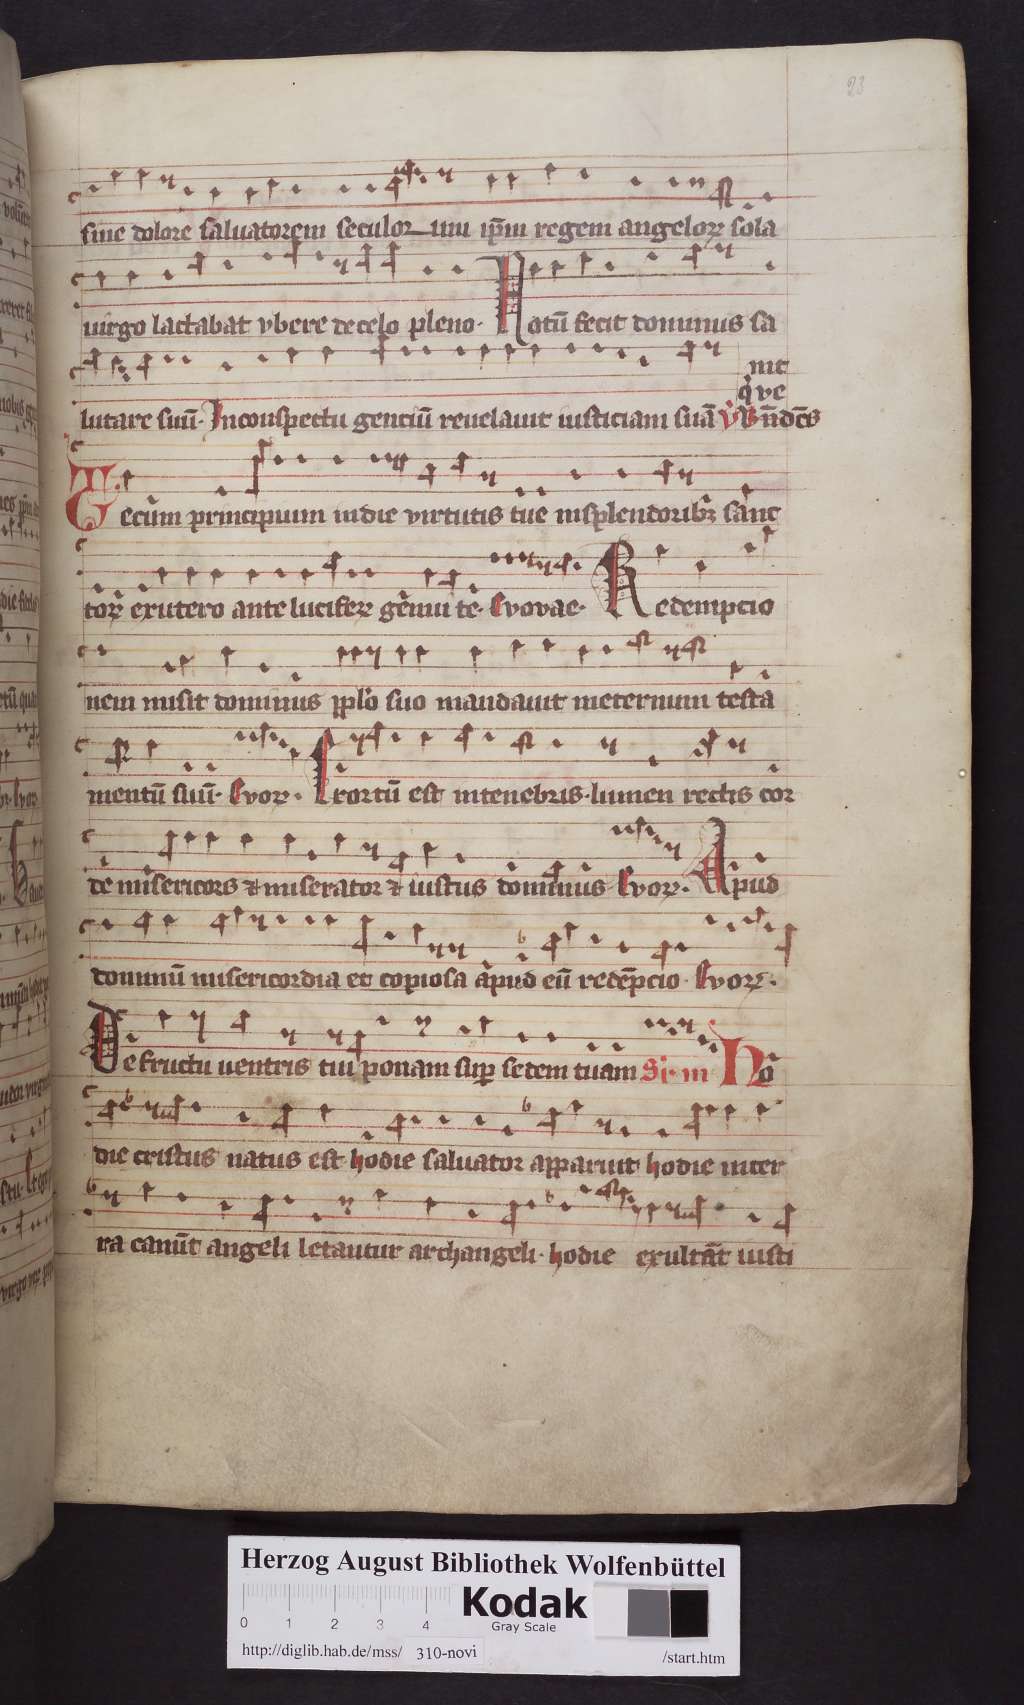 23
sine dolore saluatorem seculor um ip̄m regem angeloꝝ sola
uirgo lactabat vbere de celo pleno. Notū fecit dominus sa
lutare suū. In conspectu genciū reuelauit iusticiam suā
Tecum principium in die virtutis tue in splendoribꝫ sanc
toꝝ ex utero ante luciferꝝ genui te. Evovae. Redempcio
nem misit dominus pplo suo mandauit in eternum testa
mentū suū. Evoꝝ. Exortū est in tenebris lumen rectis cor
de misericors ⁊ miserator ⁊ iustus dominus Evoꝝ. Apud
dominū misericordia et copiosa apud eū redēpcio. Evoꝝ.
De fructu uentris tui ponam sup sedem tuam Ho
die cristus natus est hodie saluator apparuit hodie inter
ra canūt angeli letantur archangeli. hodie exultāt iusti
Herzog August Bibliothek Wolfenbüttel
0 1 2 3 4
Kodak
Gray Scale
http://diglib.hab.de/mss/ 310-novi /start.htm